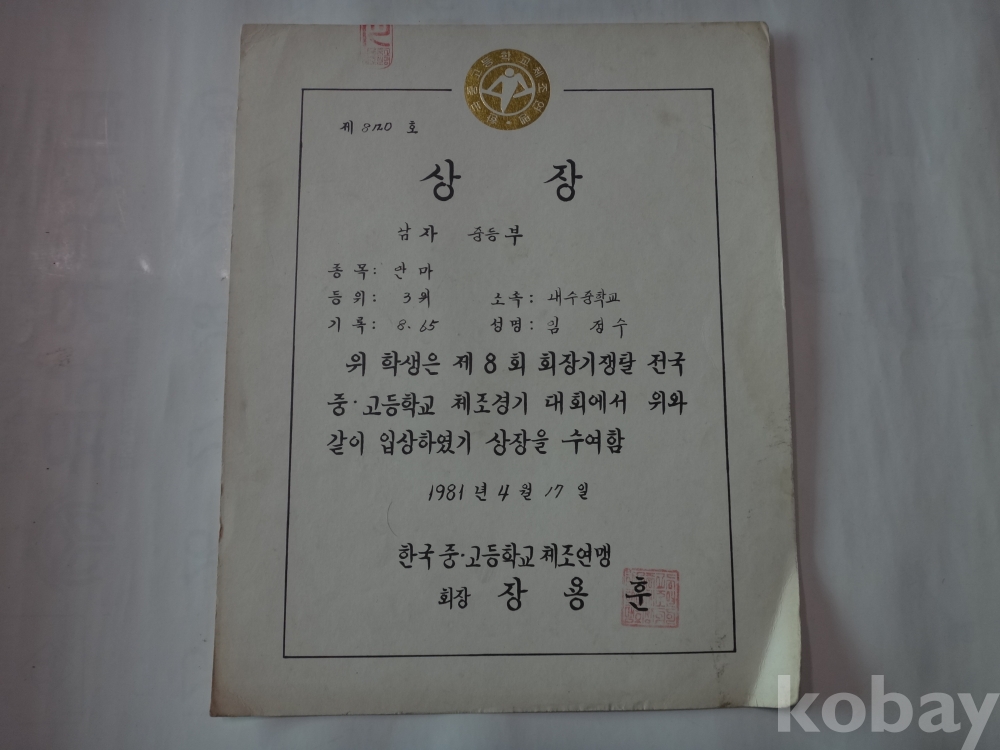 한국중고등학교체조연맹
제 8120 호
상 장
남자 중등부
종목: 안마
등위: 3위 소속: 내수중학교
기록: 8.65 성명: 임 정수
위 학생은 제 8 회 회장기쟁탈 전국
중·고등학교 체조경기 대회에서 위와
같이 입상하였기 상장을 수여함
1981 년 4 월 17 일
한국 중·고등학교 체조연맹
회장 장 용 훈
kobay